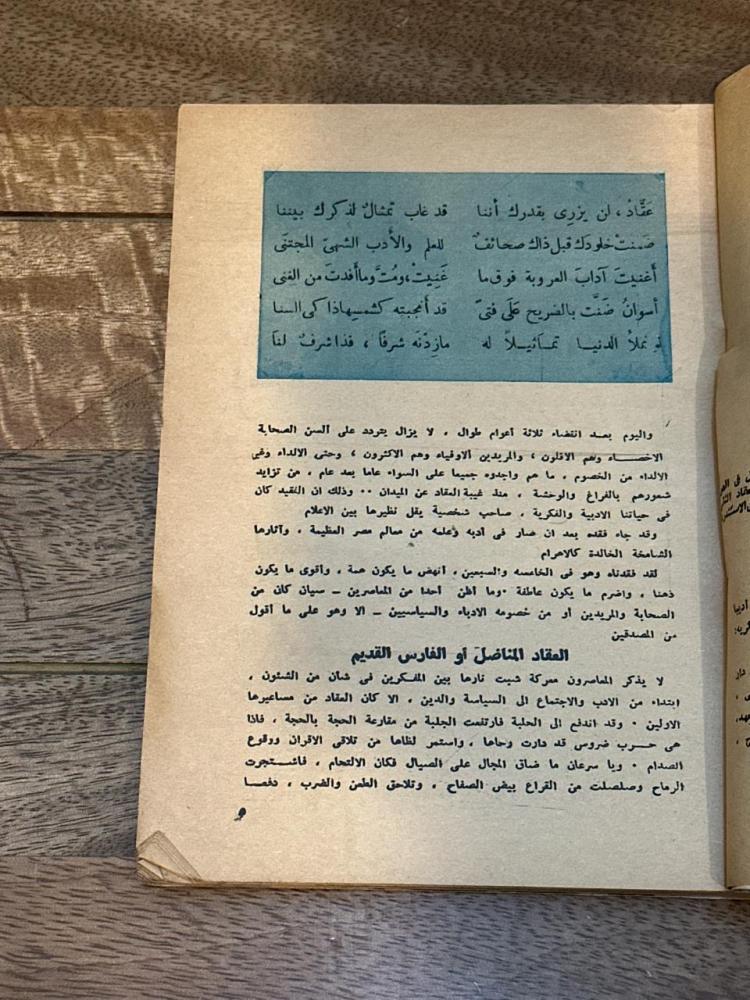 عَقَّادُ، لن يزرى بقدرك أننا قد غاب تمثالٌ لذكرك بيننا
ضمنتْ خلودك قبل ذاك صحائفٌ للعلم والأدب الشهىّ المجتنَى
أغنيتَ آدابَ العروبة فوق ما غَنِيتْ، ومُتَّ وما أفدتَ من الغنى
أسوانُ ضَنَّت بالضريح عَلَى فتىً قد أنجبته كشمسها ذاكى السنا
نملأُ الدنيا تمـاثيـلاً له مازدْنَه شرفًا، فذا شرفٌ لنا
واليوم بعد انقضاء ثلاثة أعوام طوال ، لا يزال يتردد على ألسن الصحابة
الاخصـــاء وهم الاقلون ، والمريدين الاوفياء وهم الاكثرون ، وحتى الالداء وغير
الالداء من الخصوم ، ما هم واجدوه جميعا على السواء عاما بعد عام ، من تزايد
شعورهم بالفراغ والوحشة ، منذ غيبة العقاد عن الميدان ٠٠ وذلك ان الفقيد كان
فى حياتنا الادبية والفكرية ، صاحب شخصية يقل نظيرها بين الاعلام
وقد جاء فقده بعد ان صار فى أدبه وعلمه من معالم مصر العظيمة ، وآثارها
الشامخة الخالدة كالاهرام
لقد فقدناه وهو فى الخامسه والسبعين، أنهض ما يكون همة ، وأقوى ما يكون
ذهنا ، واضرم ما يكون عاطفة ٠ وما أظن أحدا من المعاصرين ــ سيان كان من
الصحابة والمريدين أو من خصومه الادباء والسياسيين ــ الا وهو على ما أقول
من المصدقين
العقاد المناضل أو الفارس القديم
لا يذكر المعاصرون معركة شبت نارها بين المفـكرين فى شأن من الشئون ،
ابتداء من الادب والاجتماع الى السياسة والدين ، الا كان العقاد من مساعيرها
الاولين ٠ وقد اندفع الى الحلبة فارتفعت الجلبة من مقارعة الحجة بالحجة ، فاذا
هى حــرب ضروس قد دارت رحاها ، واستعر لظاها من تلاقى الاقران ووقوع
الصدام ٠ ويا سرعان ما ضاق المجال على الصيال فكان الالتحام ، فاشــتجرت
الرماح وصلصلت من القراع بيض الصفاح ، وتلاحق الطعن والضرب ، دفعـا
٩